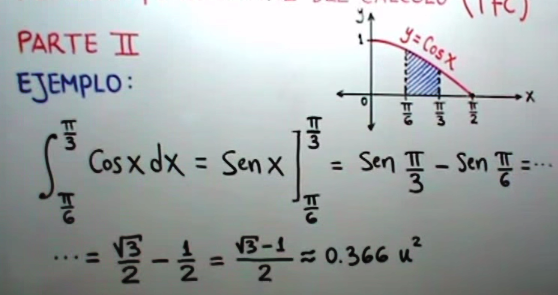 DEL CÁLCULO (TFC)
PARTE II
EJEMPLO:
y
1
y=Cosx
0
π/6
π/3
π/2
x
∫_{π/6}^{π/3} Cosx dx = Senx ]_{π/6}^{π/3} = Sen π/3 - Sen π/6 = ...
... = √3/2 - 1/2 = (√3-1)/2 ≈ 0.366 u²